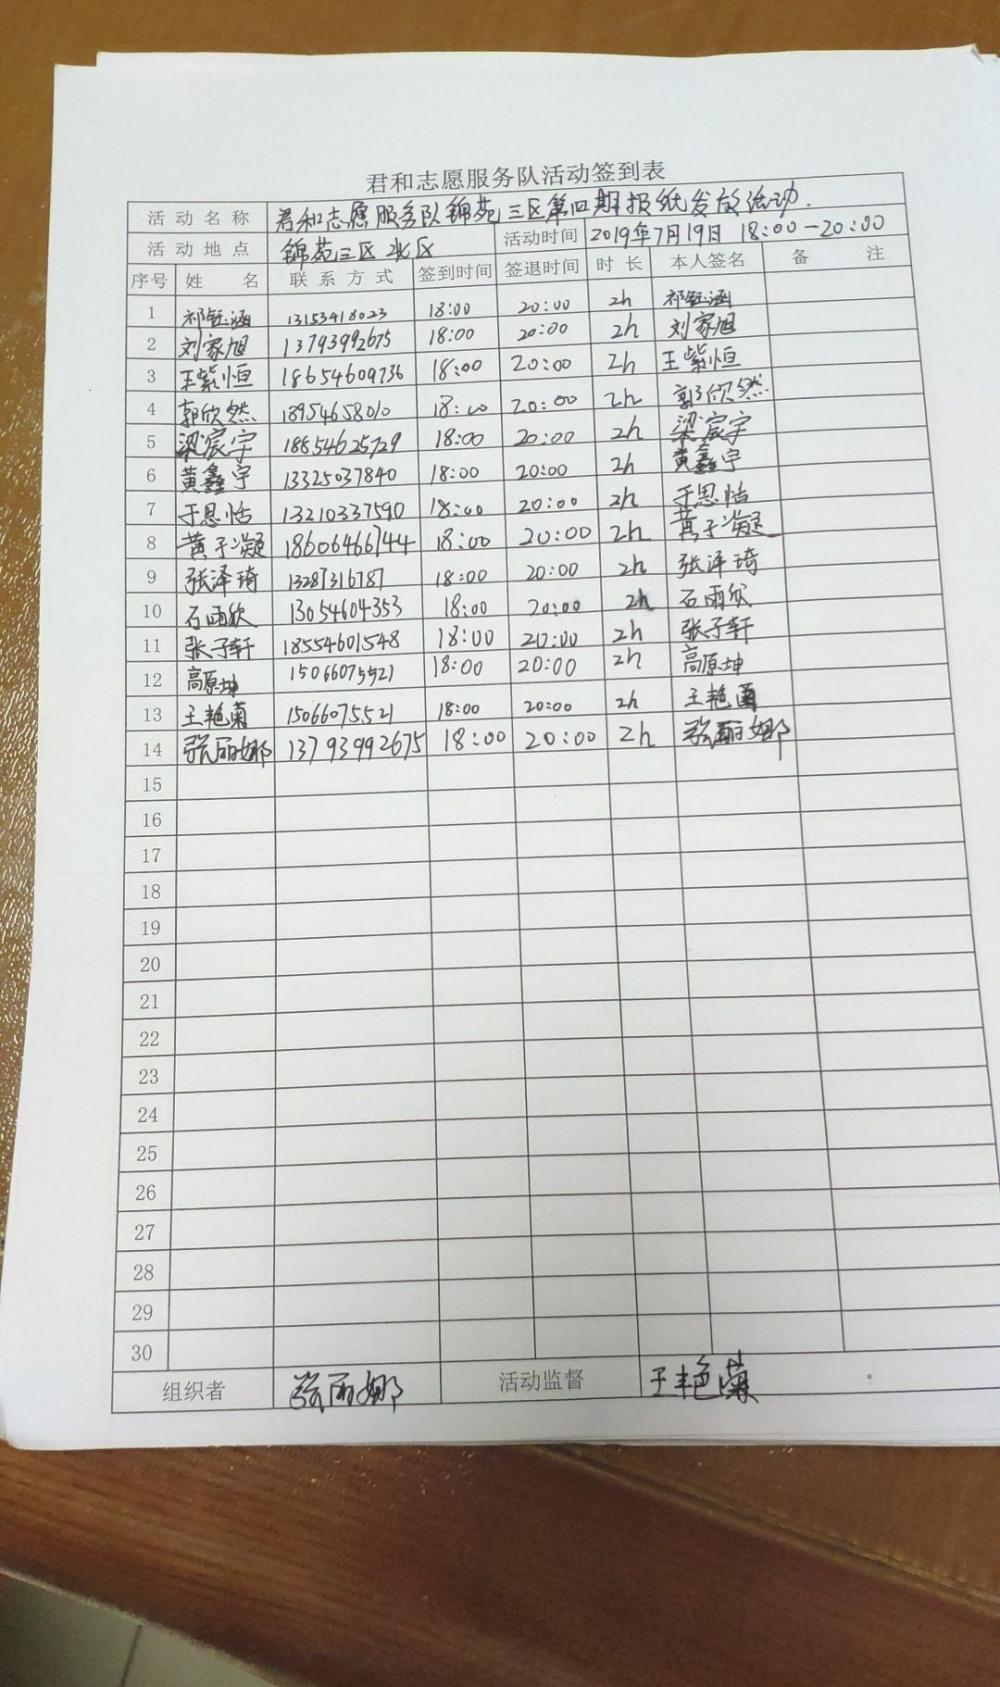 君和志愿服务队活动签到表
活动名称 君和志愿服务队锦苑三区第四期报纸发放活动.
活动地点 锦苑三区北区 活动时间 2019年7月19日 18:00-20:00
序号 姓名 联系方式 签到时间 签退时间 时长 本人签名 备注
1 祁钰涵 13153418023 18:00 20:00 2h 祁钰涵
2 刘家旭 13793992675 18:00 20:00 2h 刘家旭
3 王紫恒 18654609736 18:00 20:00 2h 王紫恒
4 郭欣然 18954658010 18:00 20:00 2h 郭欣然
5 梁宸宇 18854625729 18:00 20:00 2h 梁宸宇
6 黄鑫宇 13325037840 18:00 20:00 2h 黄鑫宇
7 于思恬 13210337590 18:00 20:00 2h 于思恬
8 黄子凝 18606466744 18:00 20:00 2h 黄子凝
9 张泽琦 13287316787 18:00 20:00 2h 张泽琦
10 石雨欣 13054604353 18:00 20:00 2h 石雨欣
11 张子轩 18554601548 18:00 20:00 2h 张子轩
12 高原坤 15066075521 18:00 20:00 2h 高原坤
13 王艳菊 15066075521 18:00 20:00 2h 王艳菊
14 张丽娜 13793992675 18:00 20:00 2h 张丽娜
15
16
17
18
19
20
21
22
23
24
25
26
27
28
29
30
组织者 张丽娜 活动监督 王艳菊